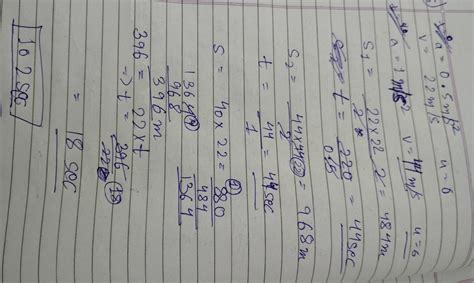 a = 0.5 m/s² u = 0
v = 22 m/s
a = 1 m/s² v = 44 m/s u = 0
S₁ = 22×22 / 2 × 2 = 484m
t = 220 / 0.5 = 44sec
S₂ = 44×44 / 2 = 968m
t = 44 / 1 = 44sec
S = 40 × 22 = 880
484
1364
1364
968
396m
396 = 22t
=> t = 396 / 22 18
= 18 sec
102 sec